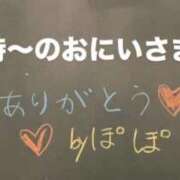 時～のおにいさま
ありがとう♡
♡byぽぽ